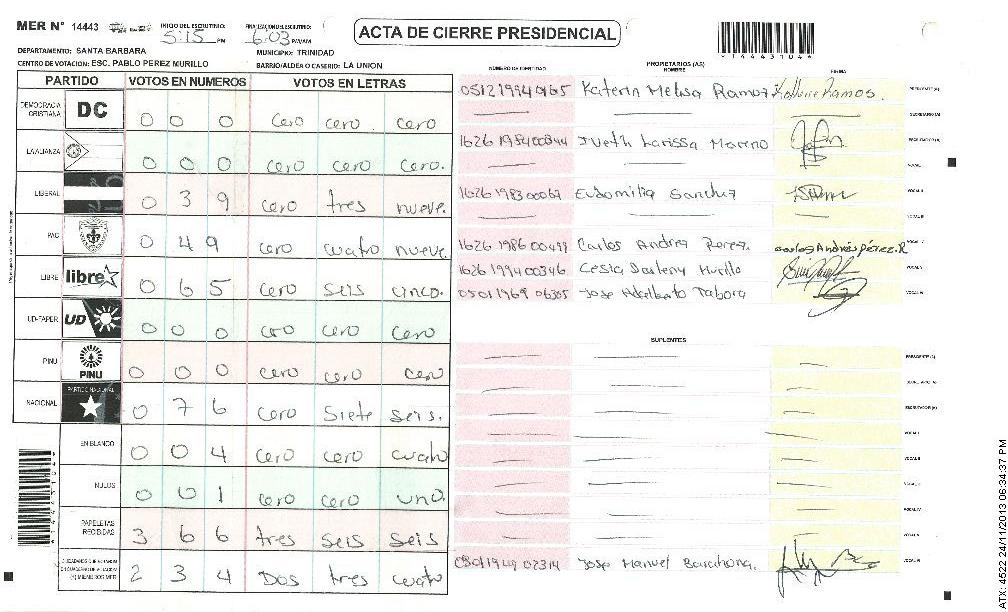 MER N° 14443 INICIO DEL ESCRUTINIO: 5:15 PM FINALIZACION DEL ESCRUTINIO: 6:03 PM/AM
ACTA DE CIERRE PRESIDENCIAL
DEPARTAMENTO: SANTA BARBARA MUNICIPIO: TRINIDAD
CENTRO DE VOTACION: ESC. PABLO PEREZ MURILLO BARRIO/ALDEA O CASERIO: LA UNION
PARTIDO VOTOS EN NUMEROS VOTOS EN LETRAS
DEMOCRACIA CRISTIANA DC 0 0 0 cero cero cero
LA ALIANZA 0 0 0 cero cero cero.
LIBERAL 0 3 9 cero tres nueve.
PAC 0 4 9 cero cuatro nueve.
LIBRE libre 0 6 5 cero seis cinco.
UD-FAPER UD 0 0 0 cero cero cero
PINU PINU 0 0 0 cero cero cero
NACIONAL PARTIDO NACIONAL 0 7 6 cero siete seis.
EN BLANCO 0 0 4 cero cero cuatro
NULOS 0 0 1 cero cero uno.
PAPELETAS RECIBIDAS 3 6 6 tres seis seis
2 3 4 Dos tres cuatro
NÚMERO DE IDENTIDAD PROPIETARIOS (AS) NOMBRE FIRMA
Katerin Melisa Ramos Katherine Ramos. PRESIDENTE (A)
SECRETARIO (A)
1626 1954 00344 Iveth Larissa Moreno ESCRUTADOR (A)
VOCAL I
1626 1983 00067 Eudomilia Sanchez VOCAL II
VOCAL III
1626 1986 00499 Carlos Andres Perez. Carlos Andrés Pérez.R
1626 1994 00346 Cesia Darleny Murillo VOCAL V
0501 1969 06305 Jose Adalberto Tabora VOCAL VI
SUPLENTES
PRESIDENTE (A)
SECRETARIO (A)
ESCRUTADOR (A)
VOCAL I
VOCAL II
VOCAL III
VOCAL IV
VOCAL V
1949 02314 Jose Manuel Barahona. VOCAL VI
144431044
ATX: 4522 24/11/2013 06:34:37 PM